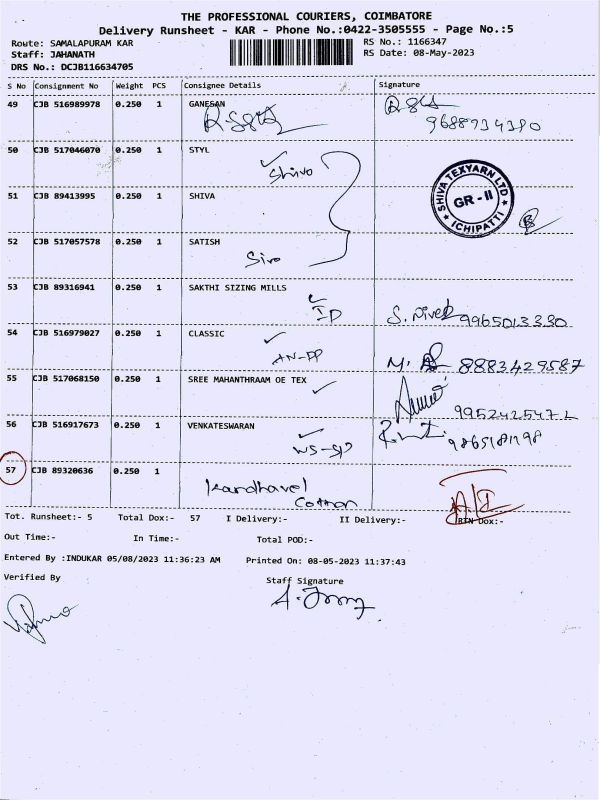 THE PROFESSIONAL COURIERS, COIMBATORE
Delivery Runsheet - KAR - Phone No.:0422-3505555 - Page No.:5
Route: SAMALAPURAM KAR
RS No.: 1166347
Staff: JAHANATH
RS Date: 08-May-2023
DRS No.: DCJB116634705
S No Consignment No Weight PCS Consignee Details Signature
49 CJB 516989978 0.250 1 GANESAN
9688734380
50 CJB 517046070 0.250 1 STYL
Shiva
SHIVA TEXYARN LTD
GR-II
ICHIPATTI
51 CJB 89413995 0.250 1 SHIVA
52 CJB 517057578 0.250 1 SATISH
Siva
53 CJB 89316941 0.250 1 SAKTHI SIZING MILLS
ID S. Nivel 9965013330
54 CJB 516979027 0.250 1 CLASSIC
AN-DP 8883429587
55 CJB 517068150 0.250 1 SREE MAHANTHRAAM OE TEX
9952425472
56 CJB 516917673 0.250 1 VENKATESWARAN
9865181798
57 CJB 89320636 0.250 1
Kandhavel
Cotton
Tot. Runsheet:- 5 Total Dox:- 57 I Delivery:- II Delivery:- RTN Dox:-
Out Time:- In Time:- Total POD:-
Entered By :INDUKAR 05/08/2023 11:36:23 AM Printed On: 08-05-2023 11:37:43
Verified By Staff Signature